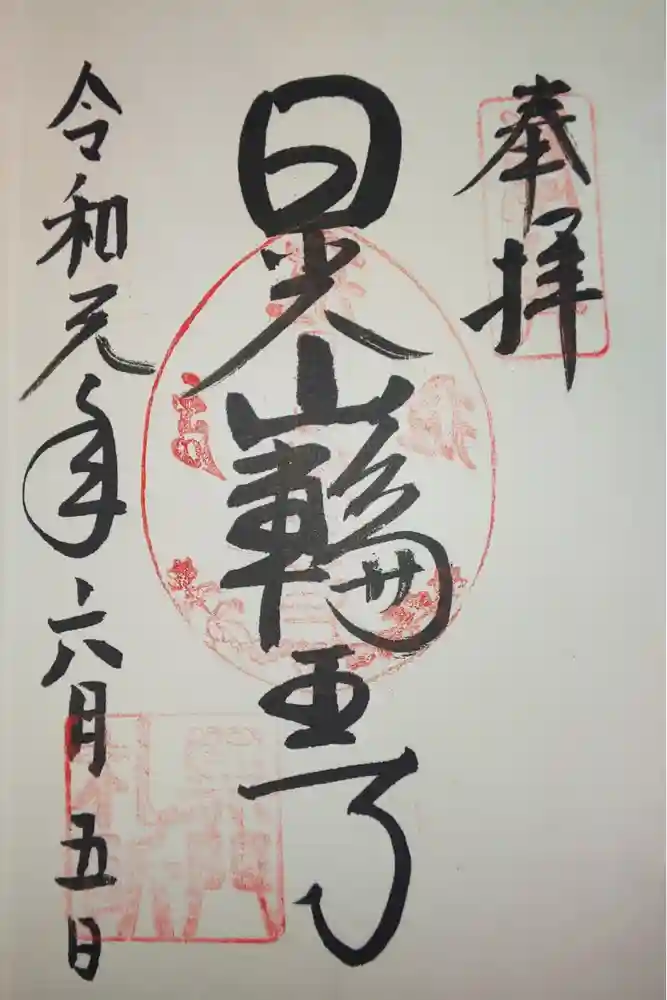 奉拝
日光山輪王寺
令和元年六月五日